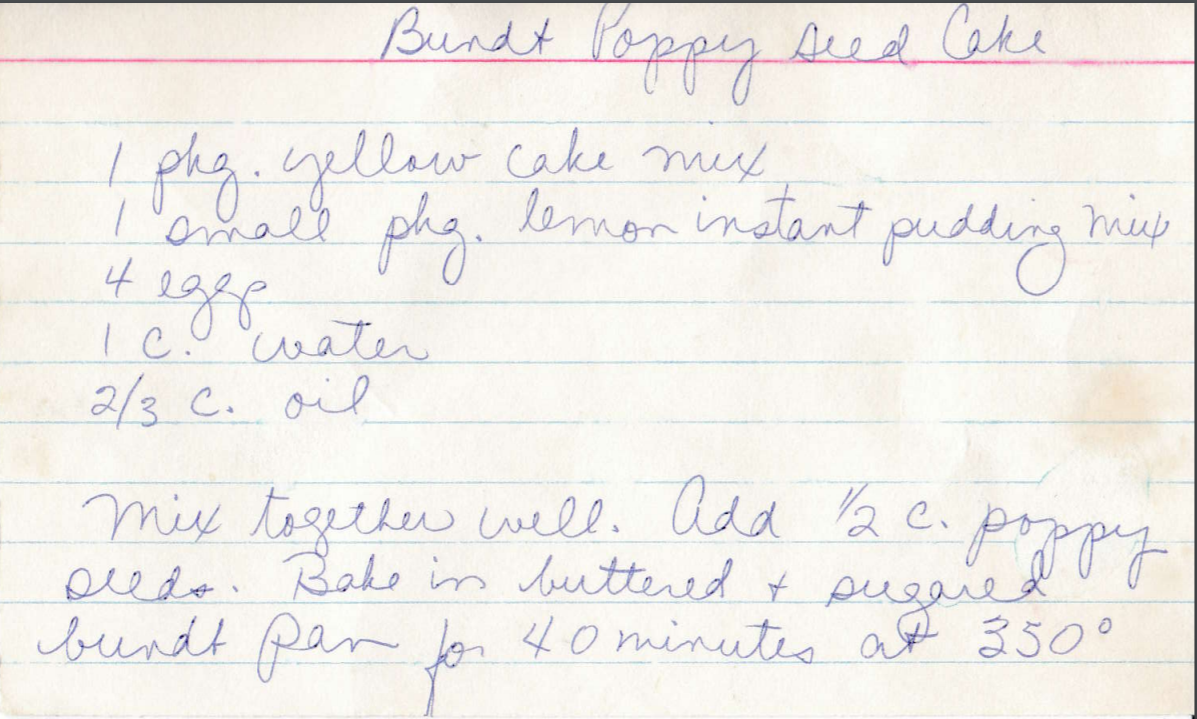 Bundt Poppy Seed Cake
1 pkg. yellow cake mix
1 small pkg. lemon instant pudding mix
4 eggs
1 c. water
2/3 c. oil
Mix together well. Add 1/2 c. poppy
seeds. Bake in buttered + sugared
bundt pan for 40 minutes at 350°